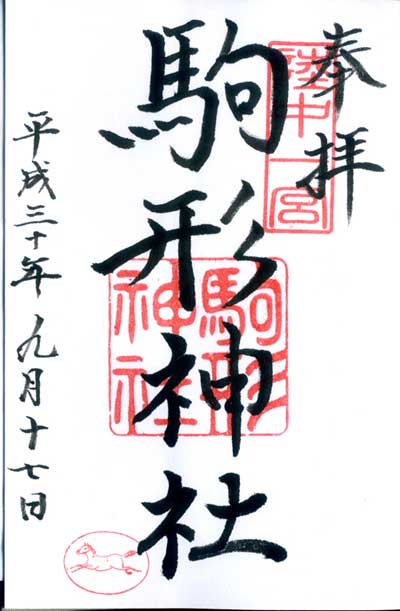 奉拝
陸中一宮
駒形神社
駒形神社
平成三十年九月十七日